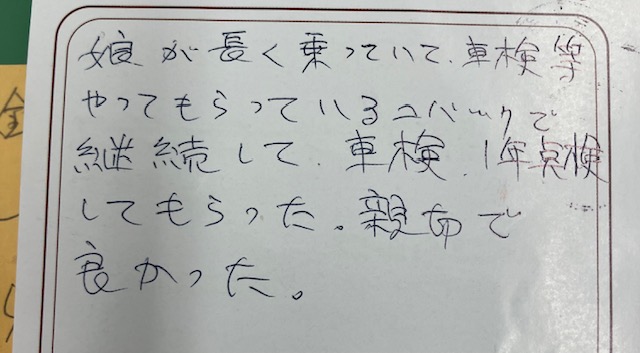 娘が長く乗っていて、車検等
やってもらっているコバックで
継続して、車検、1年点検
してもらった。親切で
良かった。